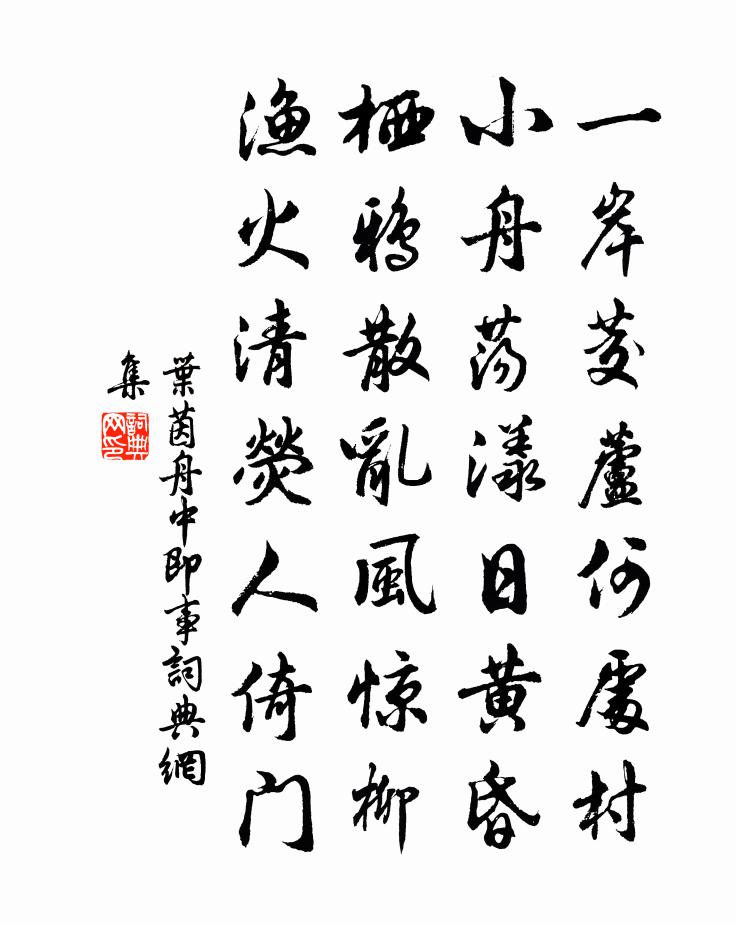 一岸茭蘆何處村
小舟蕩漾日黃昏
栖鴉散亂風惊柳
漁火清熒人倚門
葉茵舟中即事詞典網
集
詞典
网印